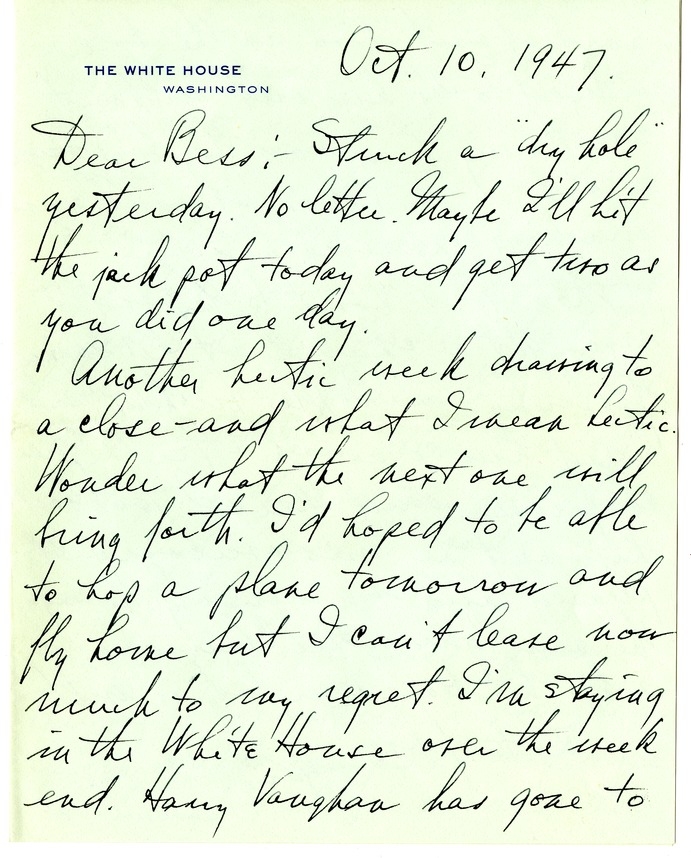 THE WHITE HOUSE
WASHINGTON
Oct. 10, 1947.
Dear Bess:- Struck a "dry hole"
yesterday. No letter. Maybe I'll hit
the jack pot today and get two as
you did one day.
Another hectic week drawing to
a close-and what I mean hectic.
Wonder what the next one will
bring forth. I'd hoped to be able
to hop a plane tomorrow and
fly home but I can't leave now
much to my regret. I'm staying
in the White House over the week
end. Harry Vaughan has gone to